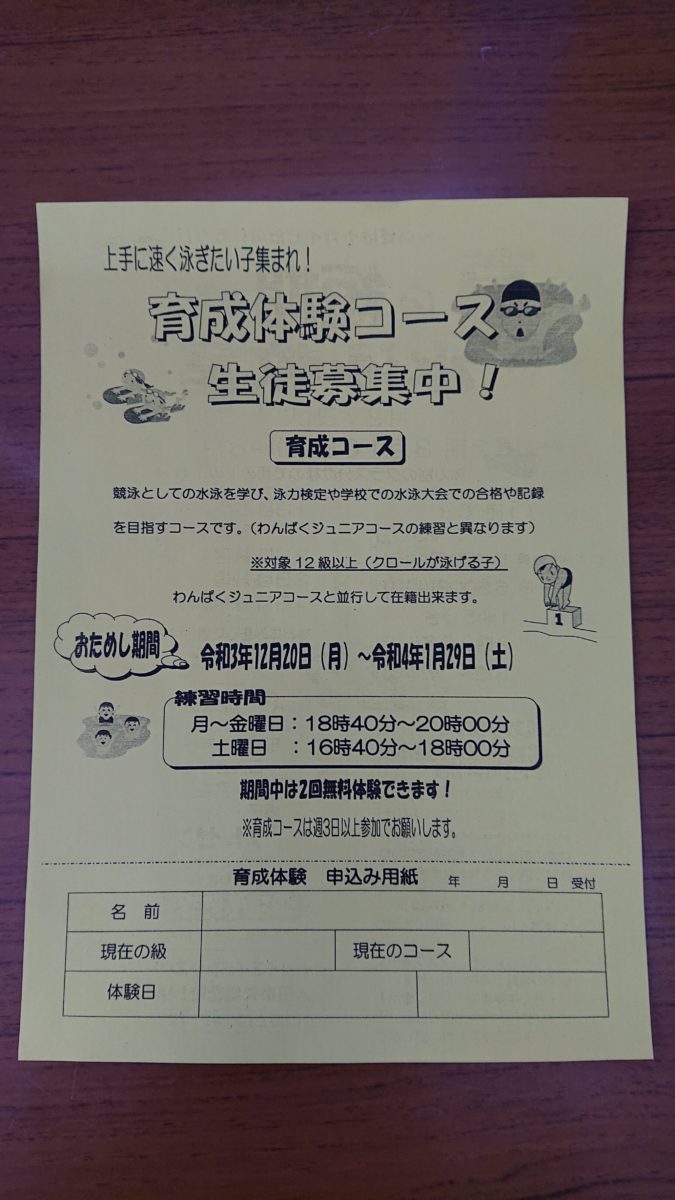 上手に速く泳ぎたい子集まれ！
育成体験コース
生徒募集中！
育成コース
競泳としての水泳を学び、泳力検定や学校での水泳大会での合格や記録
を目指すコースです。（わんぱくジュニアコースの練習と異なります）
※対象12級以上（クロールが泳げる子）
わんぱくジュニアコースと並行して在籍出来ます。
1
おためし期間
令和3年12月20日（月）～令和4年1月29日（土）
練習時間
月～金曜日：18時40分～20時00分
土曜日　：16時40分～18時00分
期間中は2回無料体験できます！
※育成コースは週3日以上参加でお願いします。
育成体験　申込み用紙　年　月　日　受付
名　前
現在の級　現在のコース
体験日